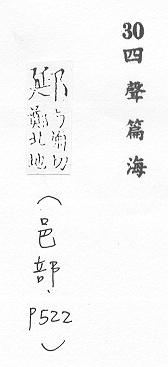 30
四聲篇海
郔
切
鄭北地
（邑部，P522）